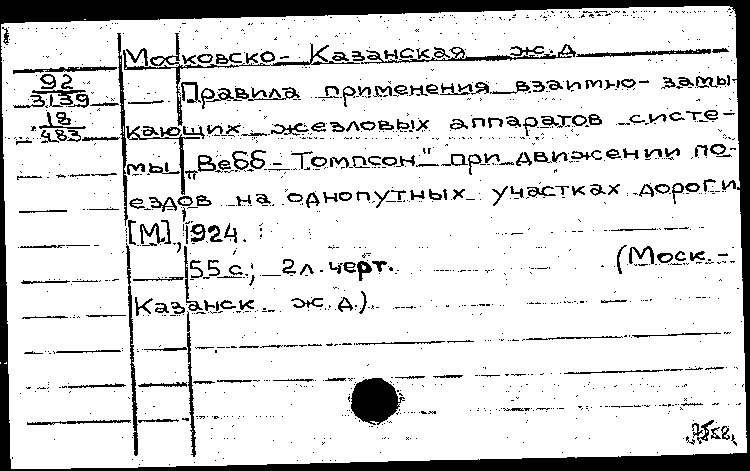 Московско-Казанская ж.д
92
3139
Правила применения взаимно-замы-
18
483
кающих жезловых аппаратов систе-
мы „Вебб-Томпсон" при движении по-
ездов на однопутных участках дороги.
[М.], 924.
55 с.; 2 л. черт. (Моск.-
Казанск. ж.д.)